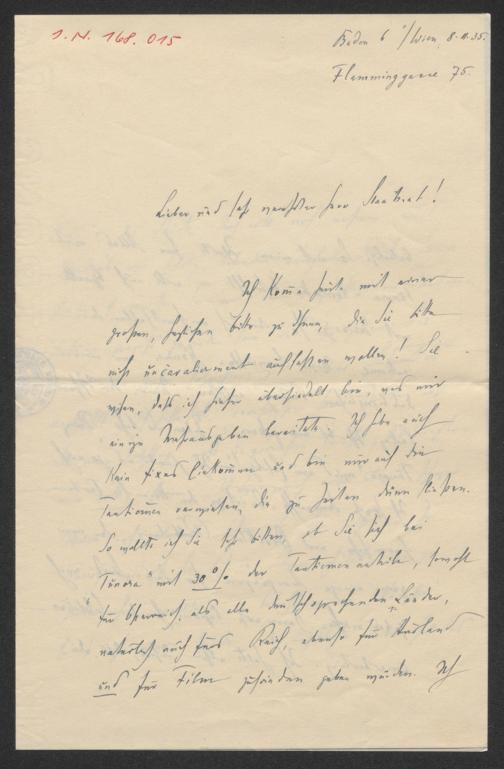 J.N. 168.015
Baden b/Wien, 8.11.35.
Flamminggasse 75.
Lieber und sehr verehrter Herr Staatsrat!
Ich komme heute mit einer
großen, herzlichen Bitte zu Ihnen, die Sie bitte
nicht uncavalierment auffassen wollen! Sie
wissen, daß ich hieher übersiedelt bin, was mir
einige Mehrausgaben bereitete. Ich habe auch
kein fixes Einkommen und bin nur auf die
Tantiemen verwiesen, die zu Zeiten dünn fließen.
So wollte ich Sie sehr bitten, ob Sie sich bei
" mit 30% der Tantiemenanteile, sowohl
für Österreich, als alle deutschsprechenden Länder,
natürlich auch fürs Reich, ebenso für Ausland
und für Filme zufrieden geben würden. Ich